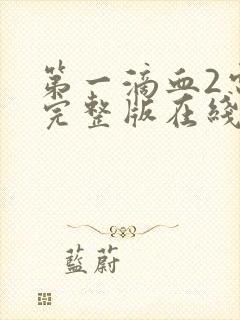 第一滴血2
完整版在綫
藍蔚